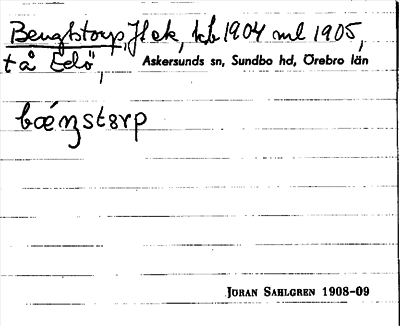 Bengtstorp, Hek, kb 1904 ml 1905,
t å Edö, Askersunds sn, Sundbo hd, Örebro län
bǽŋstɘrp
JORAN SAHLGREN 1908-09